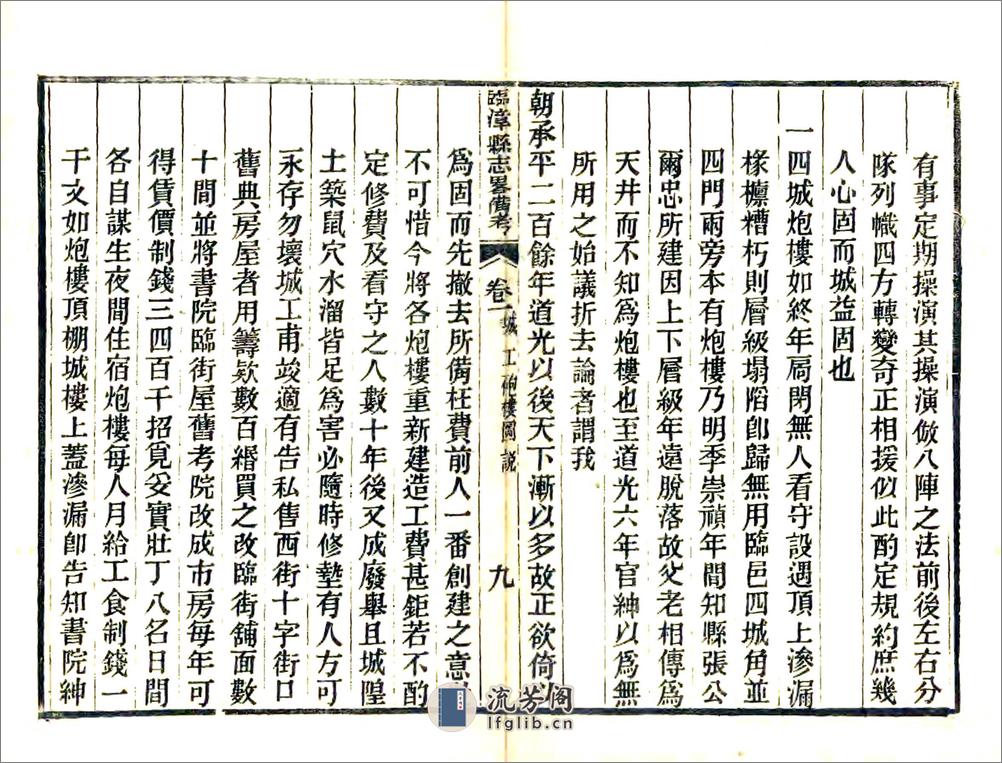 有事定期操演其操演倣八陣之法前後左右分
隊列幟四方轉變奇正相援似此酌定規約庶幾
人心固而城益固也
一四城炮樓如終年扃閉無人看守設遇頂上滲漏
椽檩糟朽則層級塌陷卽歸無用臨邑四城角並
四門兩旁本有炮樓乃明季崇禎年間知縣張公
爾忠所建因上下層級年遠脫落故父老相傳爲
天井而不知爲炮樓也至道光六年官紳以爲無
所用之始議折去論者謂我
朝承平二百餘年道光以後天下漸以多故正欲倚
臨漳縣志畧備考
卷一
城工砲樓圖說
九
爲固而先撤去所備枉費前人一番創建之意
不可惜今將各炮樓重新建造工費甚鉅若不酌
定修費及看守之人數十年後又成廢舉且城隍
土築鼠穴水溜皆足爲害必隨時修墊有人方可
永存勿壞城工甫竣適有告私售西街十字街口
舊典房屋者用籌欵數百緡買之改臨街舖面數
十間並將書院臨街屋舊考院改成市房每年可
得賃價制錢三四百千招覓妥實壯丁八名日間
各自謀生夜間住宿炮樓每人月給工食制錢一
千文如炮樓頂棚城樓上蓋滲漏卽告知書院紳
流芳阁
lfglib.cn